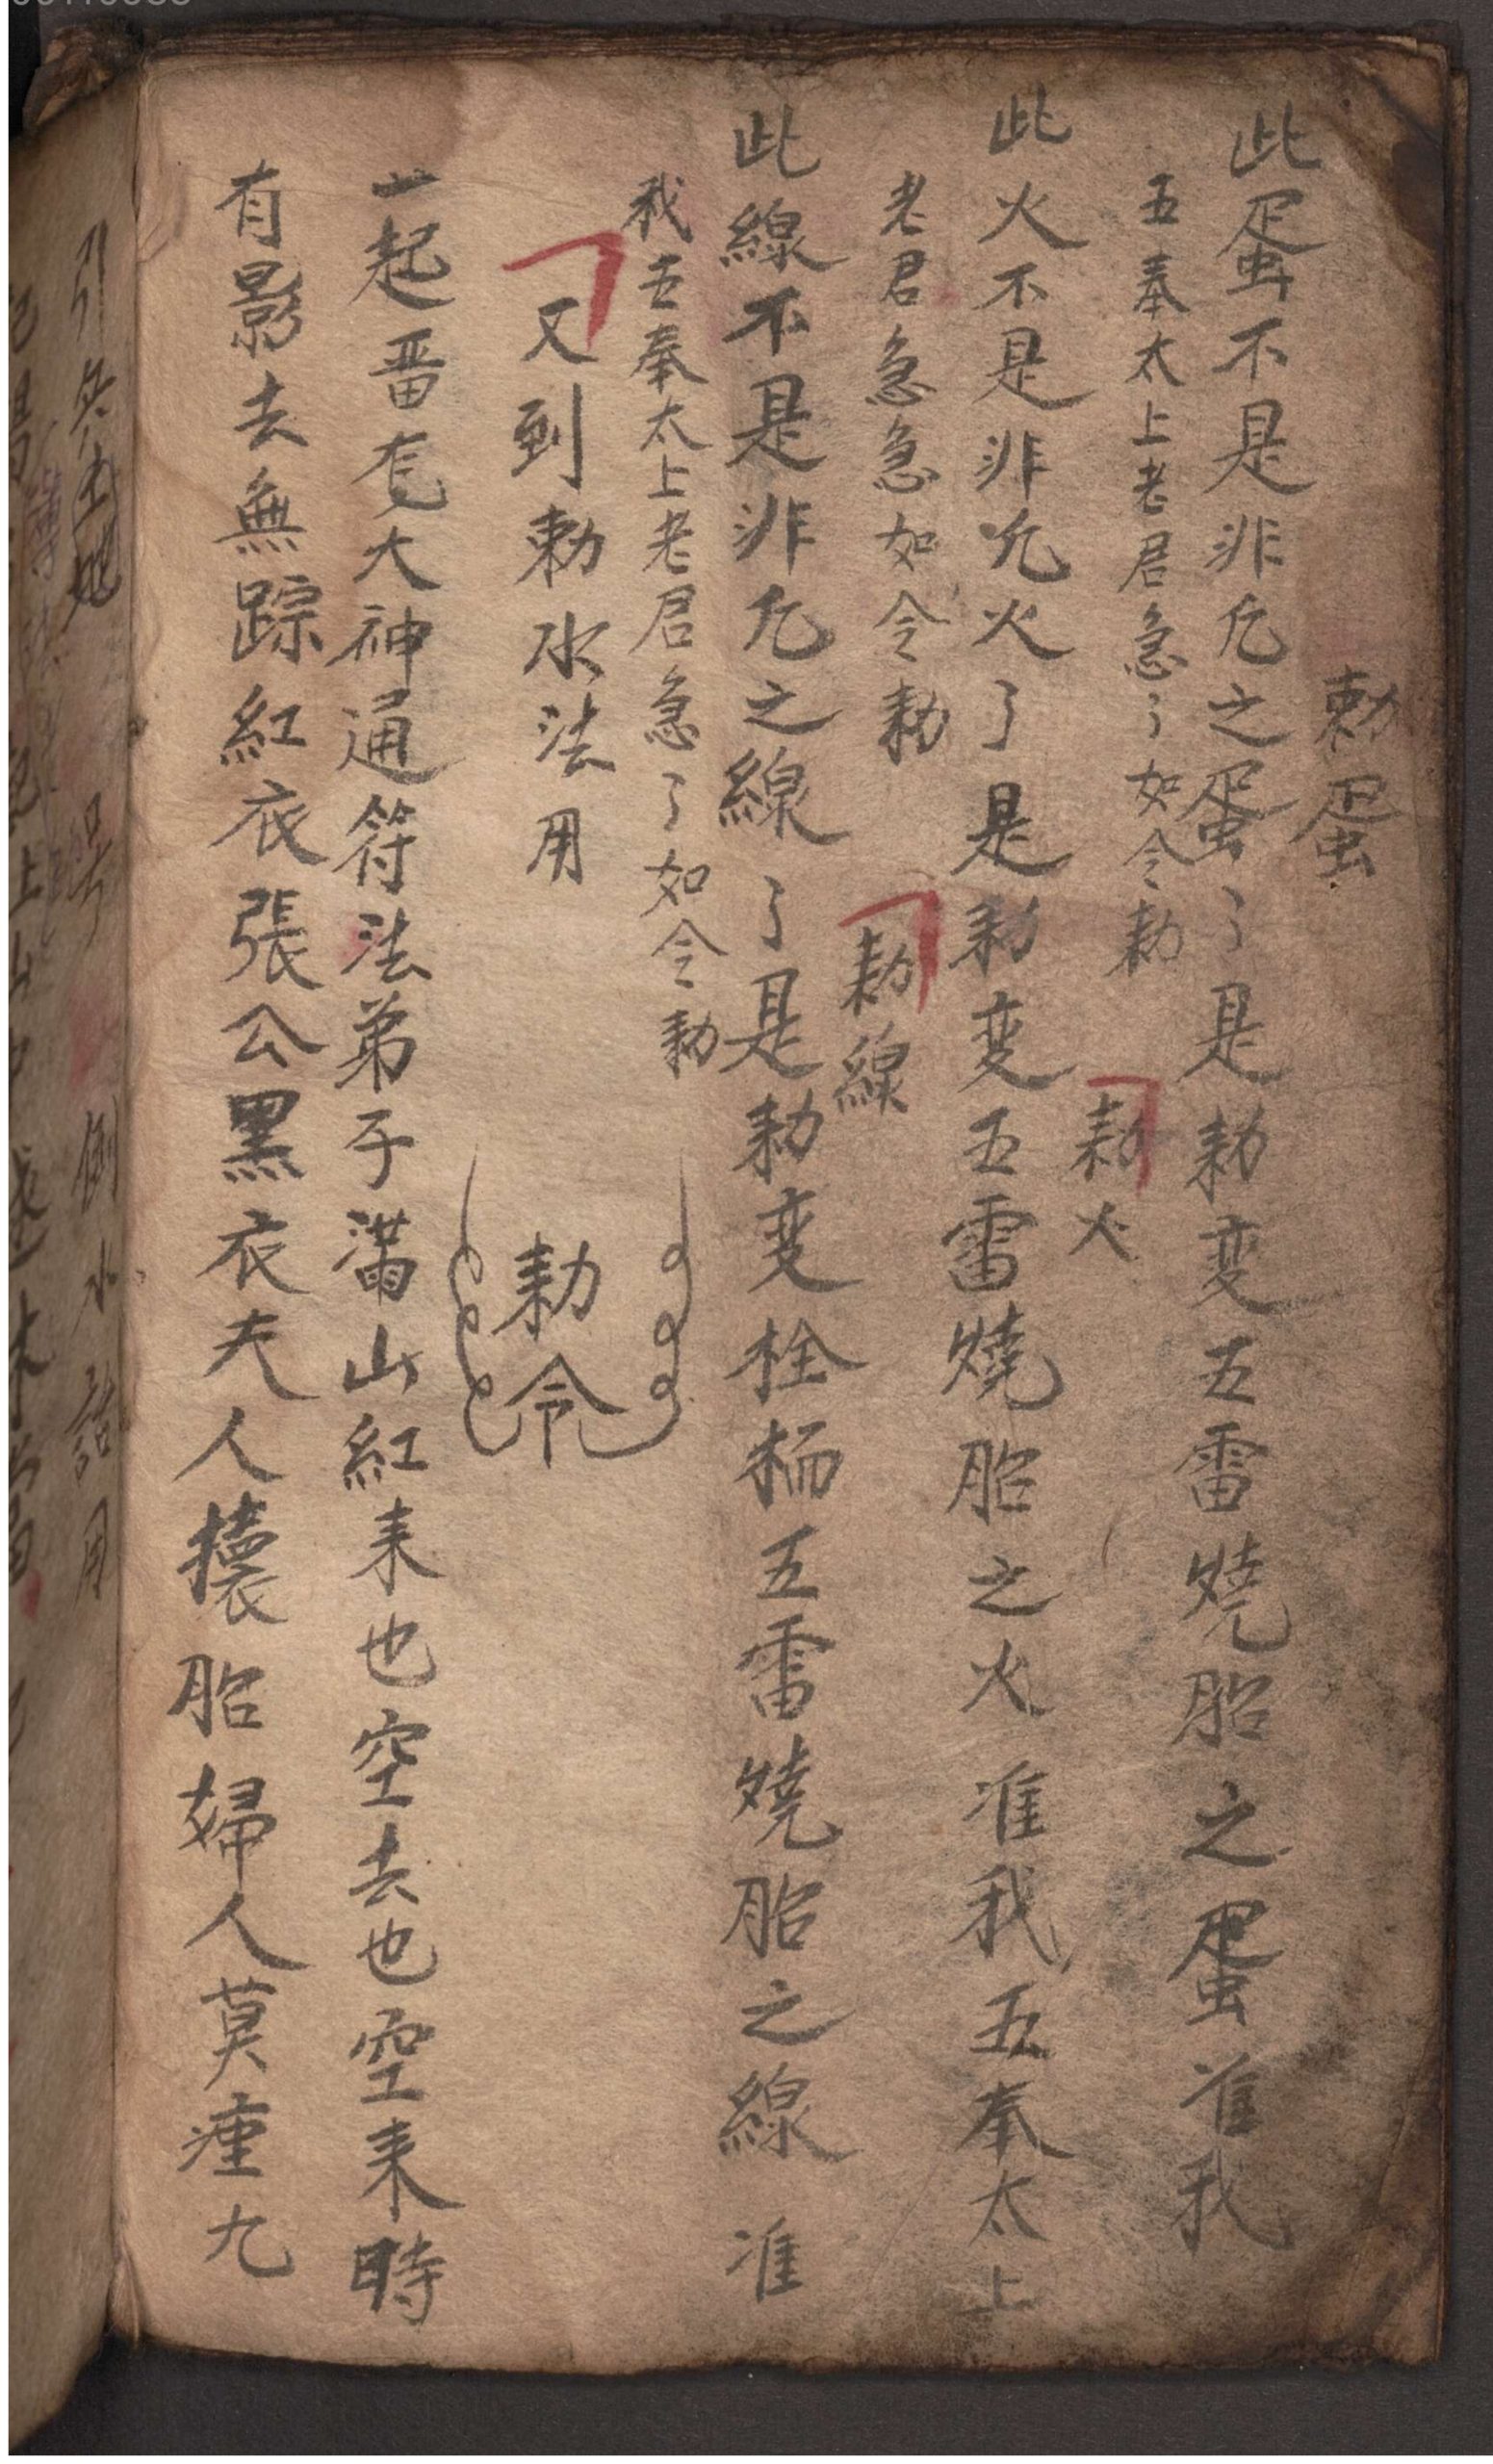 勅蛋
此蛋不是非凡之蛋了是勅变五雷燒胎之蛋准我
五奉太上老君急了如令勅
勅火
此火不是非凡火了是勅变五雷燒胎之火准我五奉太上
老君急急如令勅
勅線
此線不是非凡之線了是勅变栓柄五雷燒胎之線准
我五奉太上老君急了如令勅
又到勅水法用
勅令
一起番大神通符法弟子滿山紅来也空去也空来時
有影去無踪紅衣張公黑衣夫人攘胎婦人莫痓九
引 号 倒水語用